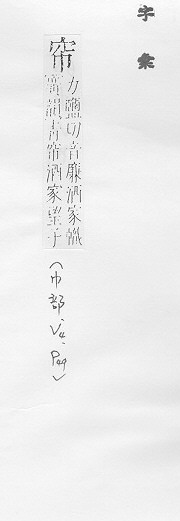 字彙
帘
力鹽切音廉酒家幟
廣韻青帘酒家望子
(巾部 V.4, P49)